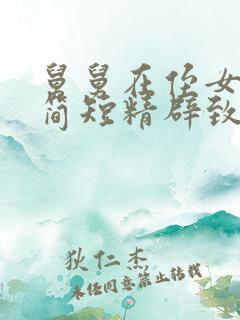 舅舅在侄女
简短精辟致
狄仁杰
未经同意禁止转载